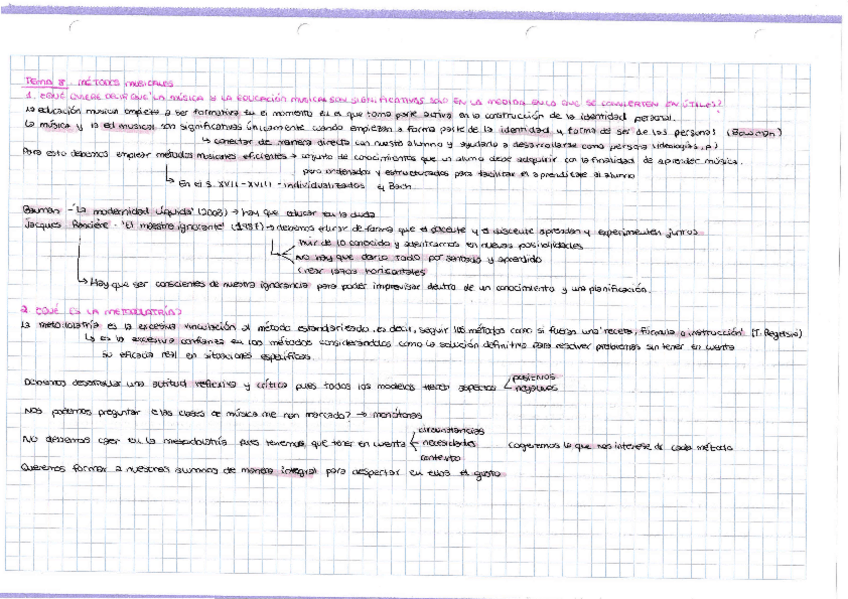 TEMA 8. MÉTODOS MUSICALES
1. ¿QUÉ QUIERE DECIR QUE LA MÚSICA Y LA EDUCACIÓN MUSICAL SON SIGNIFICATIVAS SOLO EN LA MEDIDA EN LA QUE SE CONVIERTEN EN ÚTILES?
La educación musical empieza a ser formativa en el momento en el que toma parte activa en la construcción de la identidad personal.
La música y la ed musical son significativas únicamente cuando empiezan a forma parte de la identidad y forma de ser de las personas (Bowman)
↳ conectar de manera directa con nuestro alumno y ayudarlo a desarrollarse como persona (ideologías, )
Para esto debemos emplear métodos musicales eficientes → conjunto de conocimientos que un alumno debe adquirir con la finalidad de aprender música.
pero ordenados y estructurados para facilitar el aprendizaje al alumno
↳ En el S. XVII - XVIII - individualizados Bach
Bauman - 'La modernidad líquida' (2003) → hay que educar en la duda
Jacques Rancière - 'El maestro ignorante' (1987) → debemos educar de forma que el docente y el discente aprendan y experimenten juntos
huir de lo conocido y adentrarnos en nuevas posibilidades
no hay que darlo todo por sentado y aprendido
crear lazos horizontales
↳ Hay que ser conscientes de nuestra ignorancia para poder improvisar dentro de un conocimiento y una planificación.
2. ¿QUÉ ES LA METODOLATRÍA?
La metodolatría es la excesiva vinculación al método estandarizado, es decir, seguir los métodos como si fueran una 'receta, fórmula o instrucción' (T. Regelski)
↳ es la excesiva confianza en los métodos considerándolos como la solución definitiva para resolver problemas sin tener en cuenta
su eficacia real en situaciones específicas.
Debemos desarrollar una actitud reflexiva y crítica pues todos los modelos tienen aspectos
positivos
negativos
Nos podemos preguntar ¿las clases de música me han marcado? → monótonas
No debemos caer en la metodolatría pues tenemos que tener en cuenta
circunstancias
necesidades
contexto
cogeremos lo que nos interese de cada método
Queremos formar a nuestros alumnos de manera integral para despertar en ellos el gusto